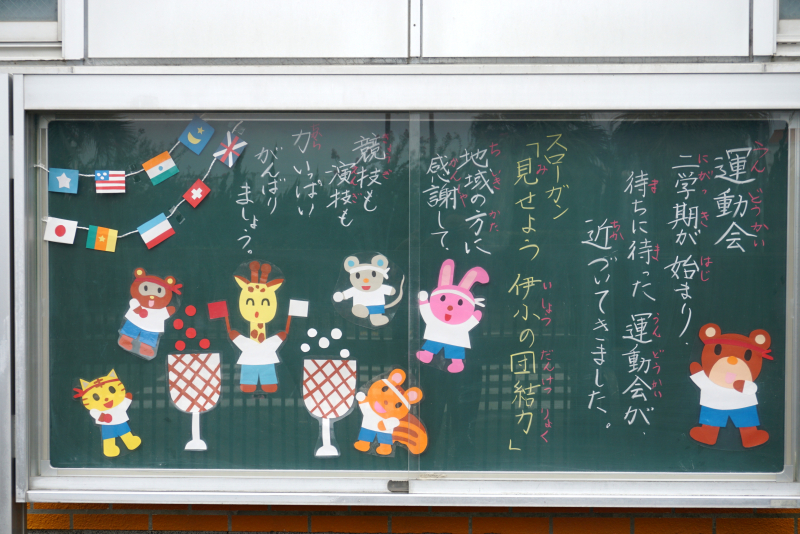 運動会
二学期が始まり、
待ちに待った運動会が、
近づいてきました。
スローガン
「見せよう 伊小の団結力」
地域の方に
感謝して、
競技も
演技も
力いっぱい
がんばり
ましょう。